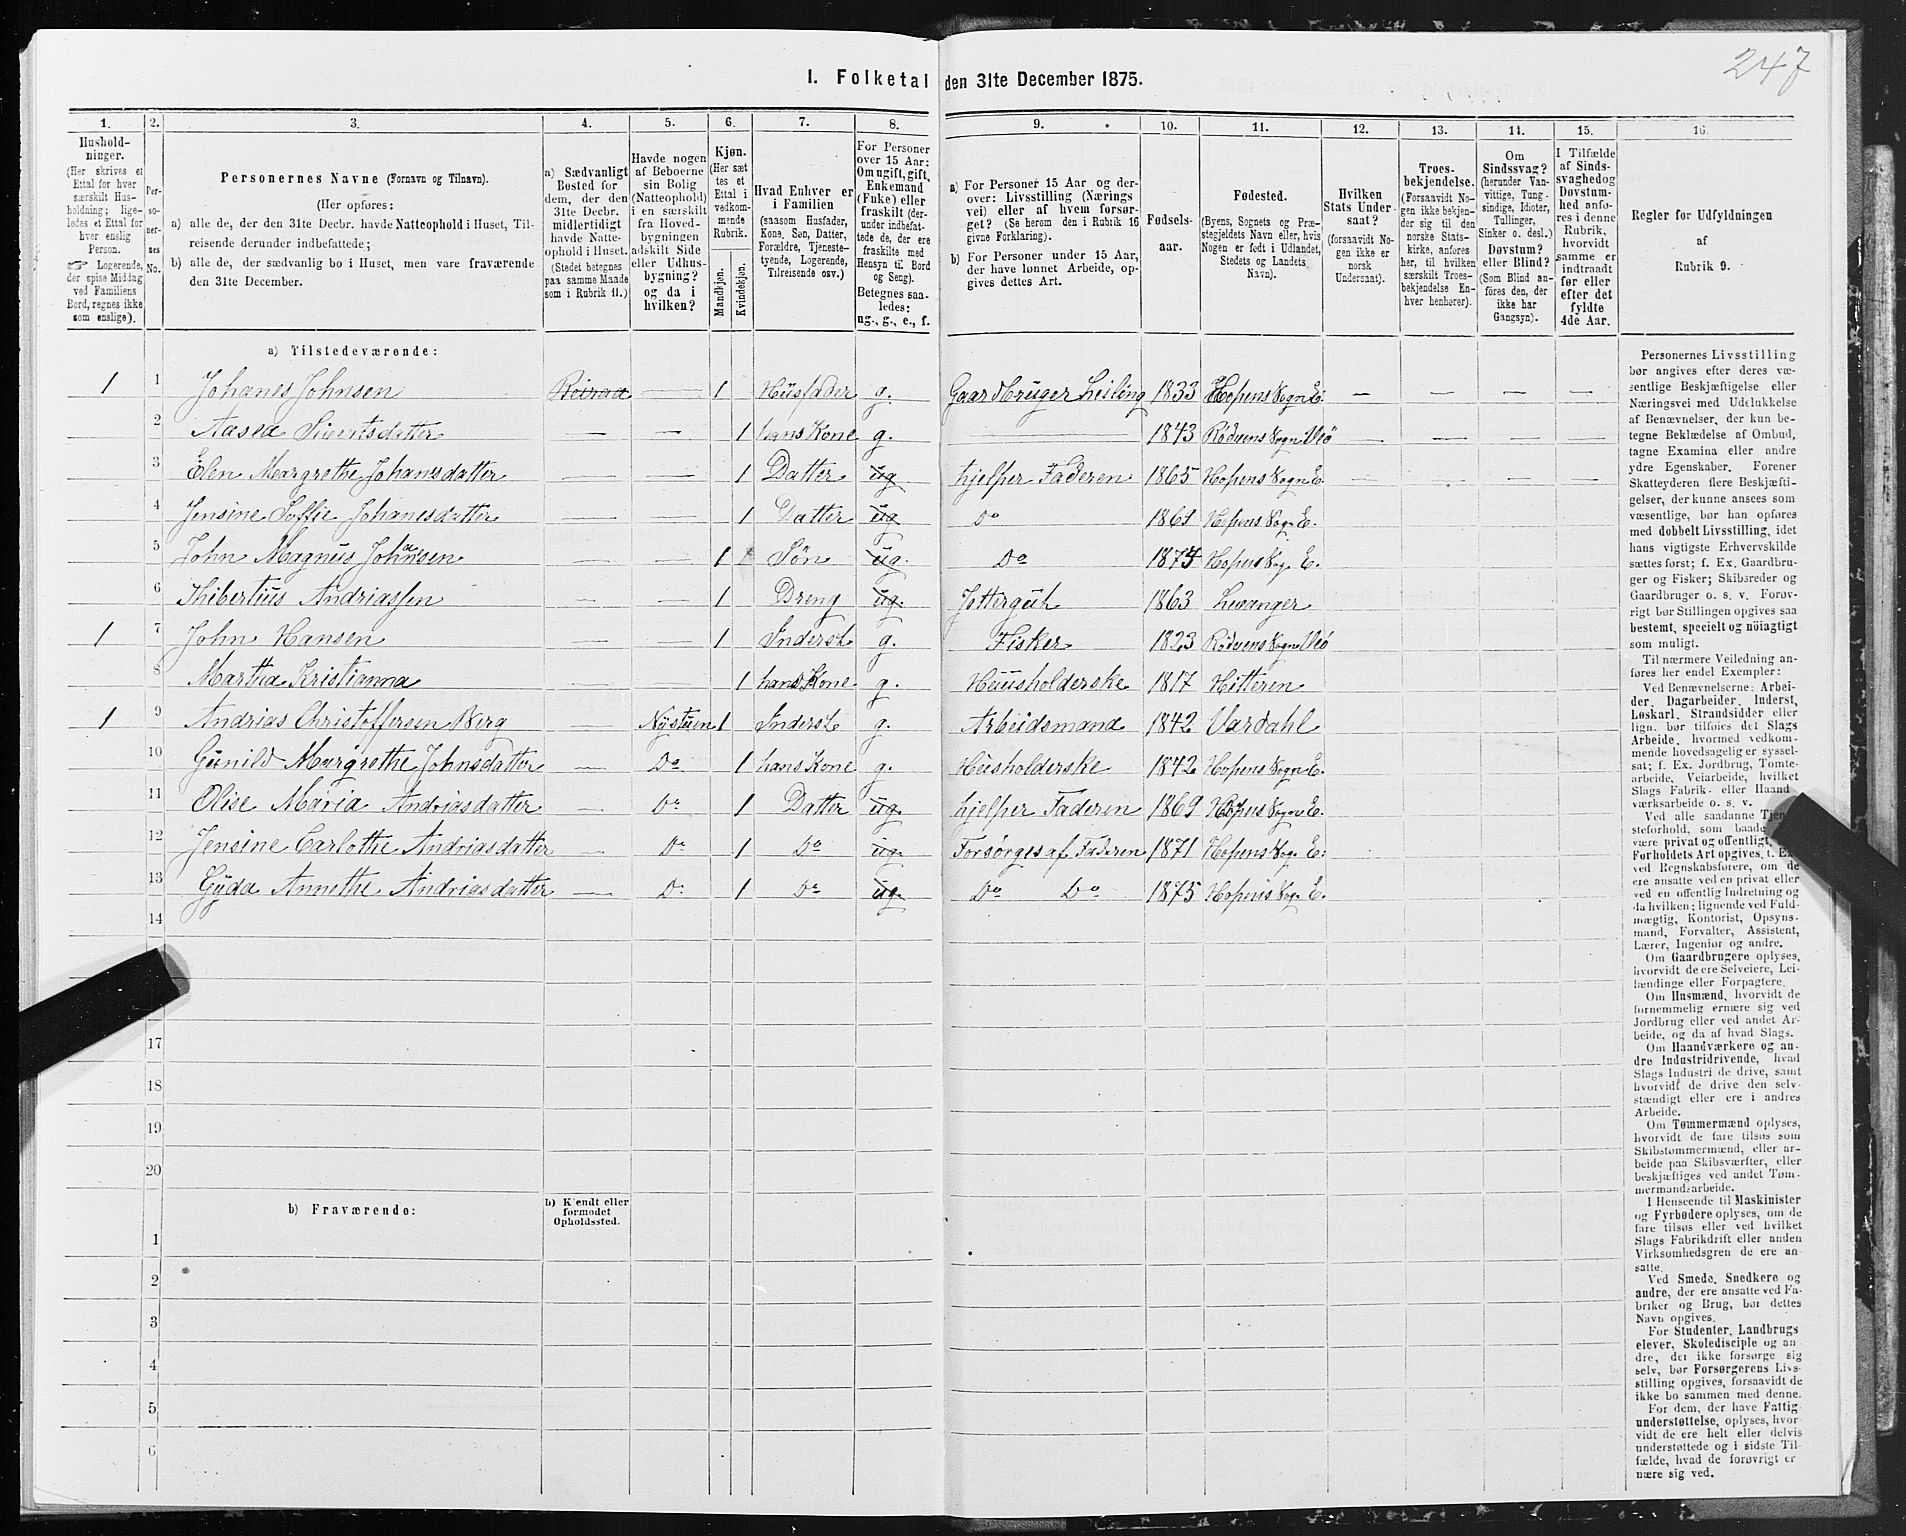 247
I. Folketal den 31te December 1875.
1. 2. 3. 4. 5. 6. 7. 8. 9. 10. 11. 12. 13. 14. 15. 16.
Husholdninger.
(Her skrives et
Ettal for hver
særskilt Husholdning;
ligeledes et Ettal for
hver enslig
Person.
☞ Logerende,
der spise Middag
ved Familiens
Bord, regnes ikke
som enslige).
Personernes No.
Personernes Navne (Fornavn og Tilnavn).
(Her opføres:
a) alle de, der den 31te Decbr. havde Natteophold i Huset, Tilreisende derunder indbefattede;
b) alle de, der sædvanlig bo i Huset, men vare fraværende
den 31te December.
a) Sædvanligt
Bosted for
dem, der den
31te Decbr.
midlertidigt
havde Natteophold i Huset.
(Stedet betegnes
paa samme Maade
som i Rubrik 11.)
Havde nogen
af Beboerne
sin Bolig
(Natteophold)
i en særskilt
fra Hovedbygningen
adskilt Side
eller Udhusbygning?
og da i
hvilken?
Kjøn.
(Her sættes et
Ettal i
vedkommende
Rubrik.
Mandkjøn.
Kvindekjøn.
Hvad Enhver er
i Familien
(saasom Husfader,
Kone, Søn, Datter,
Forældre, Tjenestetyende, Logerende,
Tilreisende osv.)
For Personer
over 15 Aar:
Om ugift, gift,
Enkemand
(Enke) eller
fraskilt (derunder indbefattede de, der ere
fraskilte med
Hensyn til Bord
og Seng).
Betegnes saaledes:
ug., g., e., f.
a) For Personer 15 Aar og derover: Livsstilling (Næringsvei) eller af hvem forsørget? (Se herom den i Rubrik 16
givne Forklaring).
b) For Personer under 15 Aar,
der have lønnet Arbeide, opgives dettes Art.
Fødselsaar.
Fødested.
(Byens, Sognets og Præstegjeldets Navn eller, hvis
Nogen er født i Udlandet,
Stedets og Landets
Navn).
Hvilken
Stats Undersaat?
(forsaavidt Nogen ikke er
norsk
Undersaat).
Troesbekjendelse.
(Forsaavidt Nogen ikke bekjender sig til den
norske Statskirke, anføres
her, til hvilken
særskilt Troesbekjendelse Enhver henhører).
Om
Sindssvag?
(herunder Vanvittige, Tungsindige, Idioter,
Tullinger,
Sinker o. desl.)
Døvstum?
eller Blind?
(Som Blind anføres den, der
ikke har
Gangsyn).
I Tilfælde
af Sindssvaghed og
Døvstumhed anføres i denne
Rubrik,
hvorvidt
samme er
indtraadt
før eller
efter det
fyldte
4de Aar.
Regler for Udfyldningen
af
Rubrik 9.
a) Tilstedeværende:
1 1 Johanes Johnsen — 1 Husfader g. Gaardbruger Leilling 1833 Hopens Sogn E. — — — —
2 Aasea Sivertsdatter — — 1 hans Kone g. — 1843 Rødvens Sogn Veø — — — —
3 Elen Margrethe Johansdatter — — 1 Datter ug hjelper Faderen 1865 Hopens Sogn E.
4 Jensine Soffie Johanesdatter — — 1 Datter ug Do 1869 Hopens Sogn E.
5 John Magnus Johansen — — 1 Søn ug. Do 1874 Hopens Sogn E.
6 Thibertius Andriassen — — 1 Dreng ug. 1863 Levanger
1 7 John Hansen — — 1 Inderst g. Fisker 1823 Rødvens Sogn Veø
8 Martha Kristianna — — 1 hans Kone g. Huusholderske 1817 Hitteren
1 9 Andrias Christoffersen Berg — Nystuen 1 Inderst g. Arbeidsmand 1842 Vardahl
10 Gunild Margrethe Johnsdatter — Do 1 hans Kone g. Husholderske 1842 Hopens Sogn E.
11 Olise Maria Andriasdatter — Do 1 Datter ug. hjelper Faderen 1869 Hopens Sogn E.
12 Jensine Carlothe Andriasdatter — Do 1 Do ug. Forsørges af Faderen 1871 Hopens Sogn E.
13 Gyda Annethe Andriasdatter — Do 1 Do ug. Do Do 1875 Hopens Sogn E.
14
17
18
19
20
b) Fraværende:
b) Kjendt eller
formodet
Opholdssted.
1
2
3
4
5
6
Personernes Livsstilling
bør angives efter deres væsentlige Beskjæftigelse eller
Næringsvei med Udelukkelse
af Benævnelser, der kun betegne Beklædelse af Ombud,
tagne Examina eller andre
ydre Egenskaber. Forener
Skatteyderen flere Beskjæftigelser, der kunne ansees som
væsentlige, bør han opføres
med dobbelt Livsstilling, idet
hans vigtigste Erhvervskilde
sættes først; f. Ex. Gaardbruger og Fisker; Skibsreder og
Gaardbruger o. s. v. Forøvrigt bør Stillingen opgives saa
bestemt, specielt og nöiagtigt
som muligt.
Til nærmere Veiledning anføres her endel Exempler:
Ved Benævnelserne: Arbeider, Dagarbeider, Inderst,
Løskarl, Strandsidder eller
lign. bør tilføies det Slags
Arbeide, hvormed vedkommende hovedsagelig er sysselsat; f. Ex. Jordbrug, Tomtearbeide, Veiarbeide, hvilket
Slags Fabrik- eller Haandværksarbeide o. s. v.
Ved alle saadanne Tjenesteforhold, som baade
være privat og offentligt,
Forholdets Art opgives, t. Ex.
ved Regnskabsførere, om de
ere ansatte ved en privat eller
ved en offentlig Indretning og
da hvilken; lignende ved Fuldmægtig, Kontorist, Opsynsmand, Forvalter, Assistent,
Lærer, Ingeniør og andre.
Om Gaardbrugere oplyses,
hvorvidt de ere Selveiere, Leilændinge eller Forpagtere.
Om Husmænd, hvorvidt de
fornemmelig ernære sig ved
Jordbrug eller ved andet Arbeide, og da af hvad Slags.
Om Haandværkere og andre Industridrivende, hvad
Slags Industri de drive, samt
hvorvidt de drive den selvstændigt eller ere i andres
Arbeide.
Om Tømmermænd oplyses,
hvorvidt de fare tilsøs som
Skibstømmermænd, eller arbeide paa Skibsværfter, eller
beskjæftiges ved andet Tømmermandsarbeide.
I Henseende til Maskinister
og Fyrbødere oplyses, om de
fare tilsøs eller ved hvilket
Slags Fabrikdrift eller anden
Virksomhedsgren de ere ansatte.
Ved Smede, Snedkere og
andre, der ere ansatte ved Fabriker og Brug, bør dettes
Navn opgives.
For Studenter, Landbrugselever, Skoledisciple og andre, der ikke forsørge sig
selv, bør Forsørgerens Livsstilling opgives, forsaavidt de
ikke bo sammen med denne.
For dem, der have Fattigunderstøttelse, oplyses, hvorvidt de ere helt eller delvis
understøttede og i sidste Tilfælde, hvad de forøvrigt ernære sig ved.